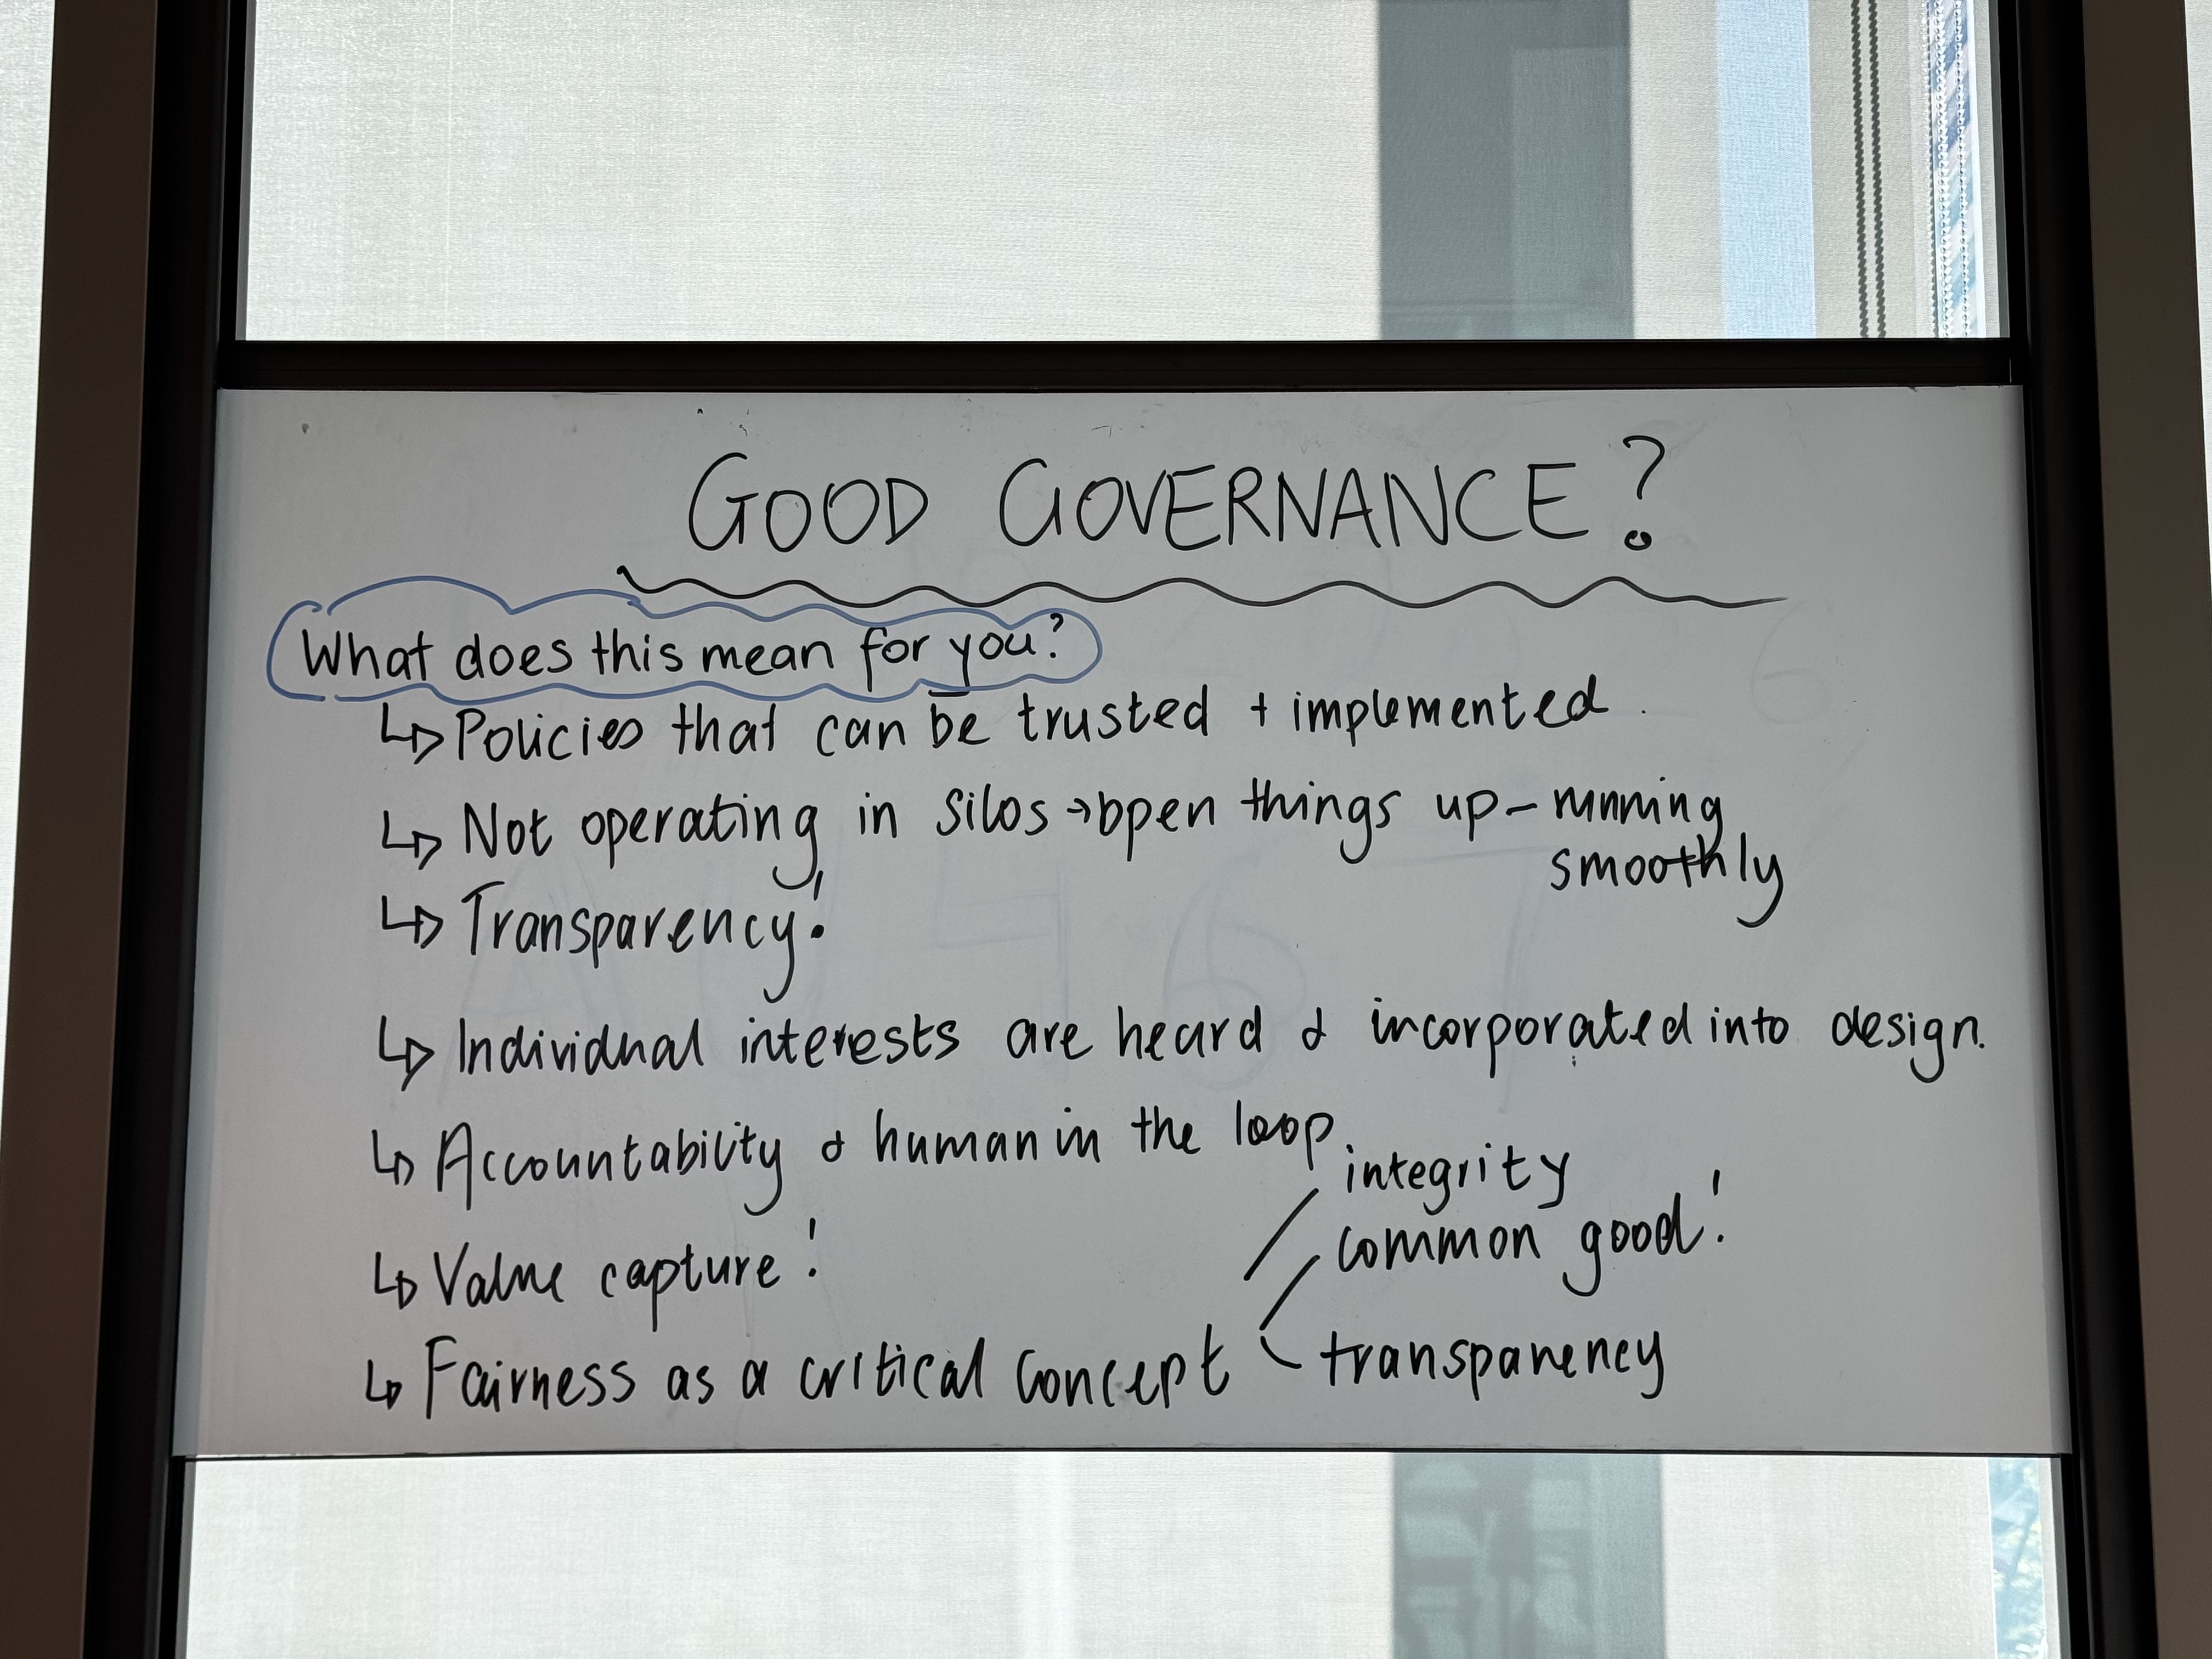 GOOD GOVERNANCE?
What does this mean for you?
↳ Policies that can be trusted + implemented.
↳ Not operating in silos → open things up – running
smoothly
↳ Transparency!
↳ Individual interests are heard & incorporated into design.
↳ Accountability & human in the loop.
integrity
common good!
↳ Value capture!
↳ Fairness as a critical concept
transparency